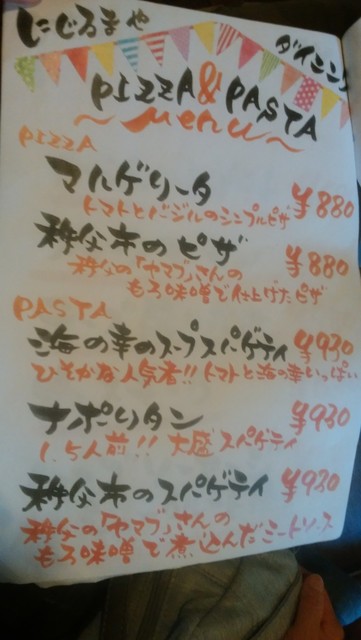 にじろまや
ダイニン
PIZZA&PASTA
～Menu～
PIZZA
マルゲリータ ¥880
トマトとバジルのシンプルピザ
秩父本のピザ ¥880
秩父の「ヤマブ」さんの
もろ味噌で仕上げたピザ
PASTA
海の幸のスープスパゲティ ¥930
ひそかな人気者!!トマトと海の幸いっぱい
ナポリタン ¥930
1.5人前!!大盛スパゲティ
秩父本のスパゲティ ¥930
秩父の「ヤマブ」さんの
もろ味噌で煮込んだミートソース